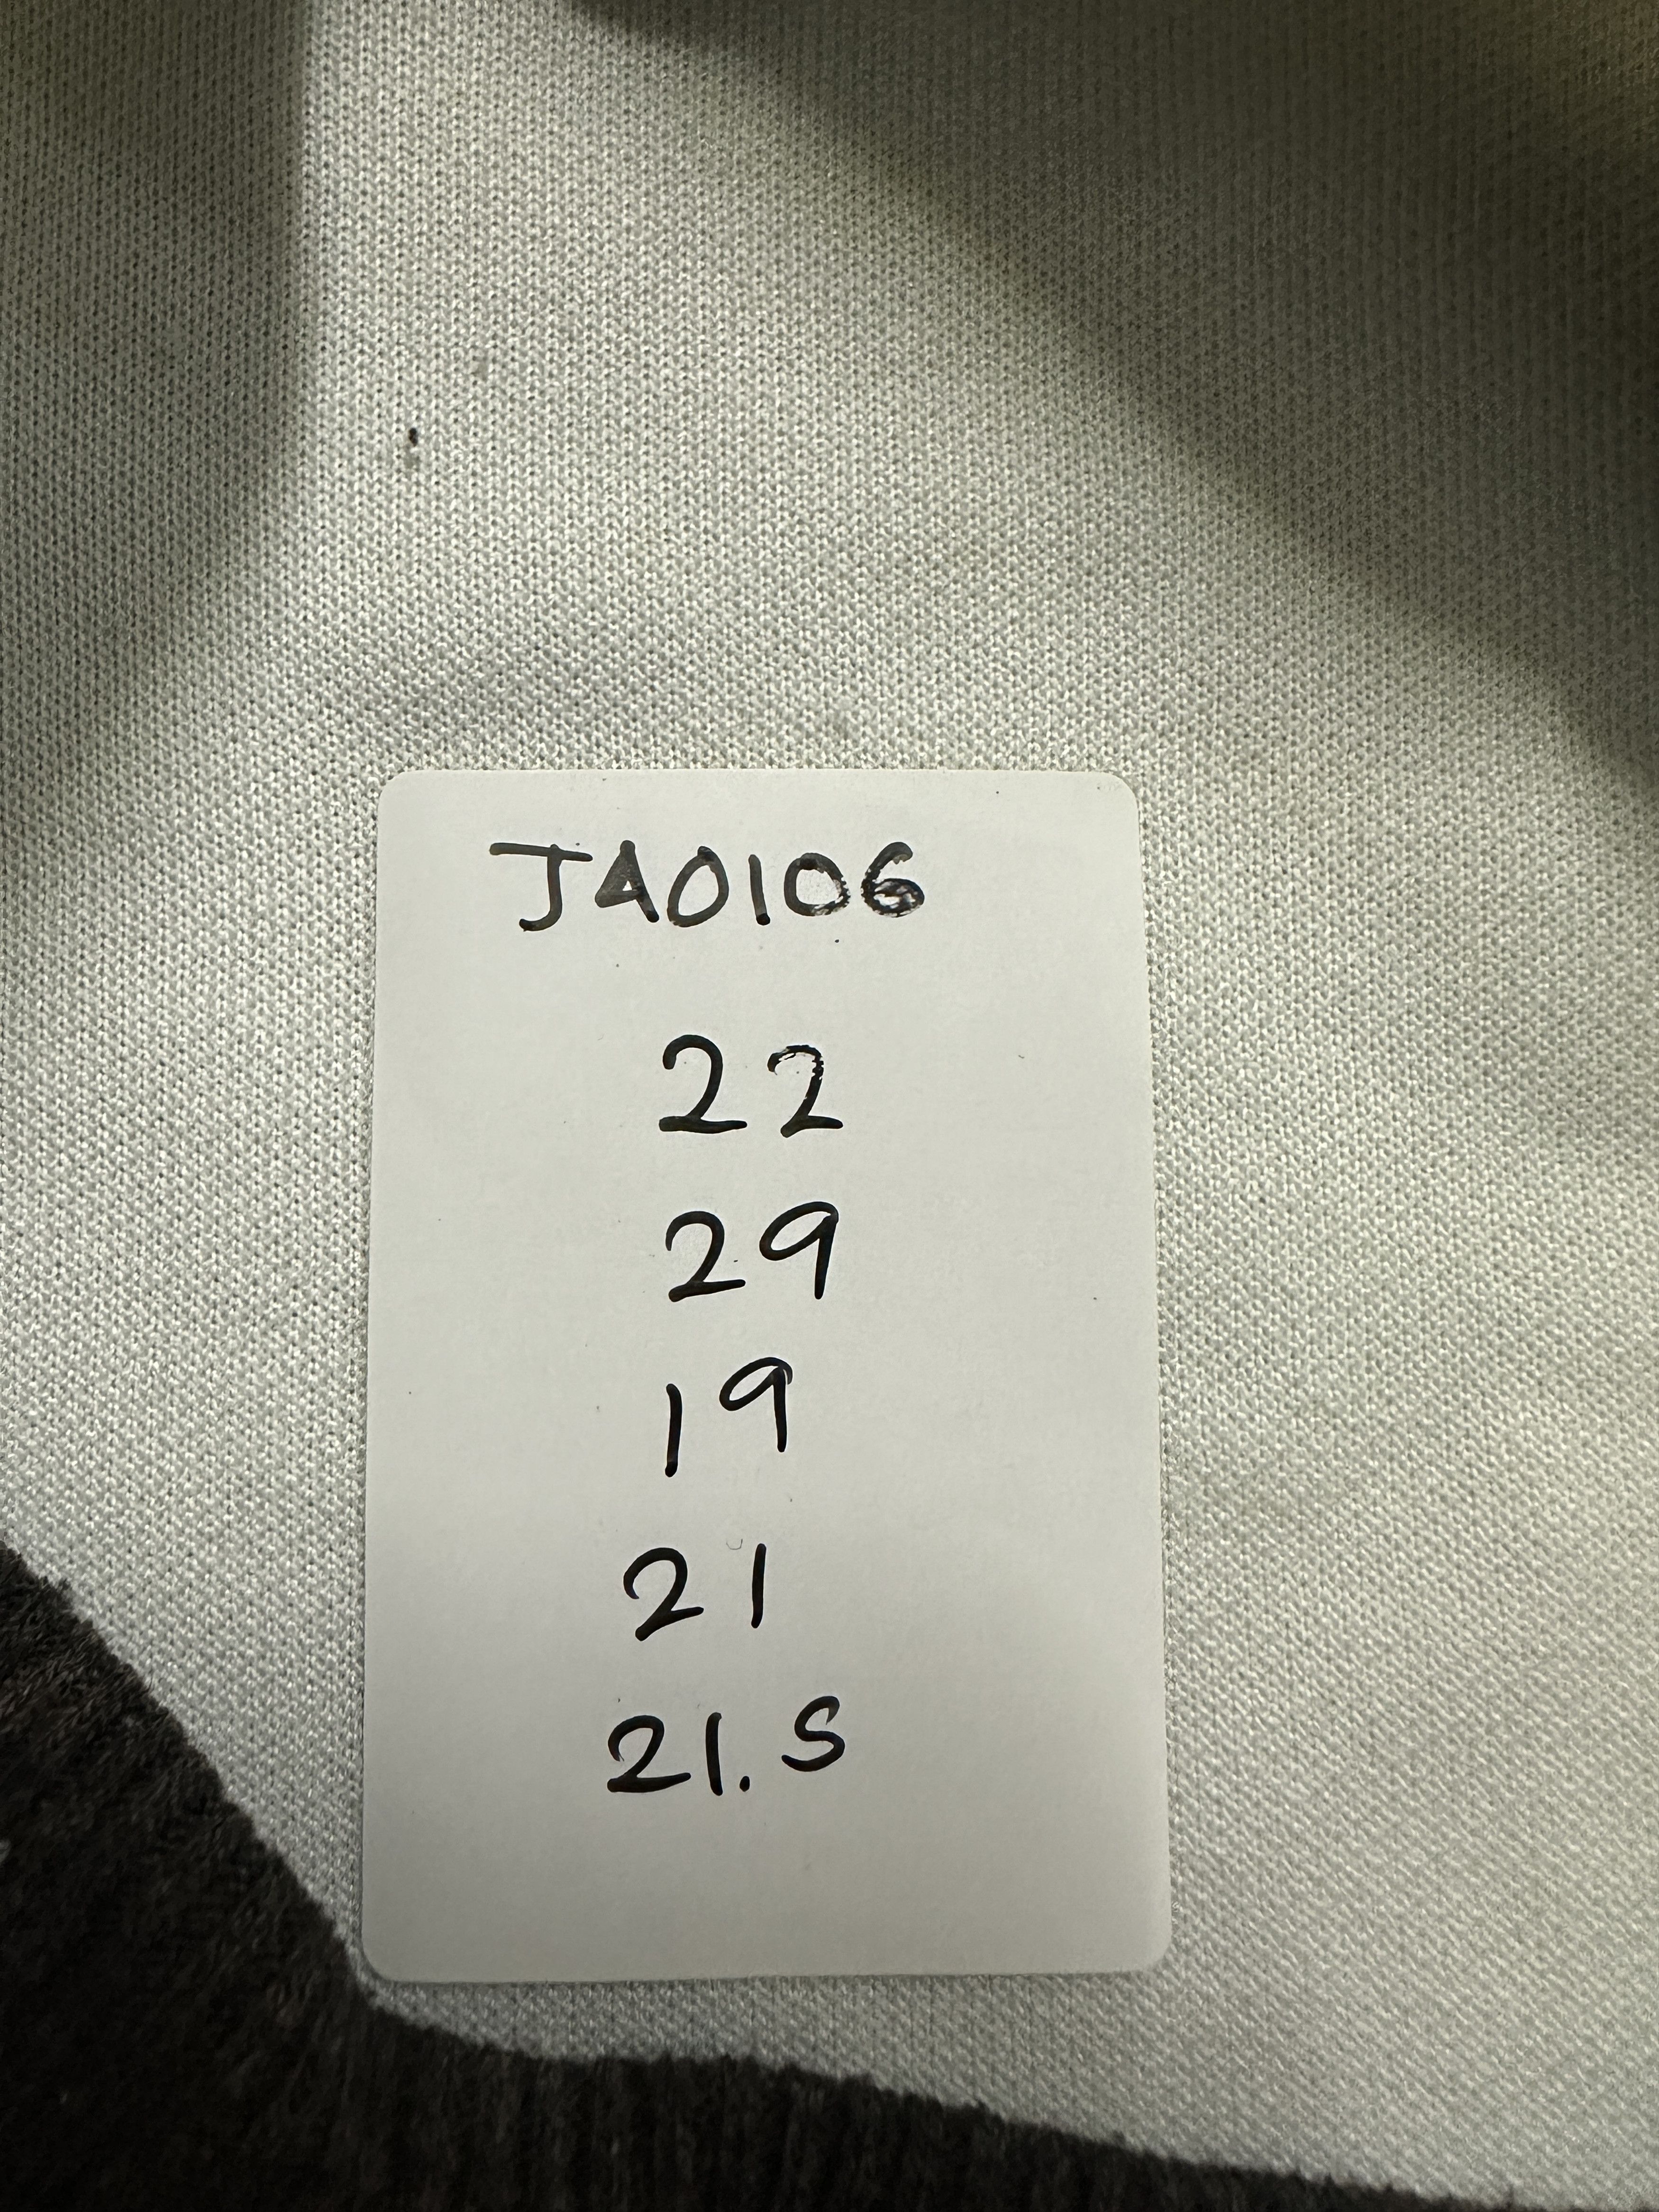 JA0106
22
29
19
21
21.5